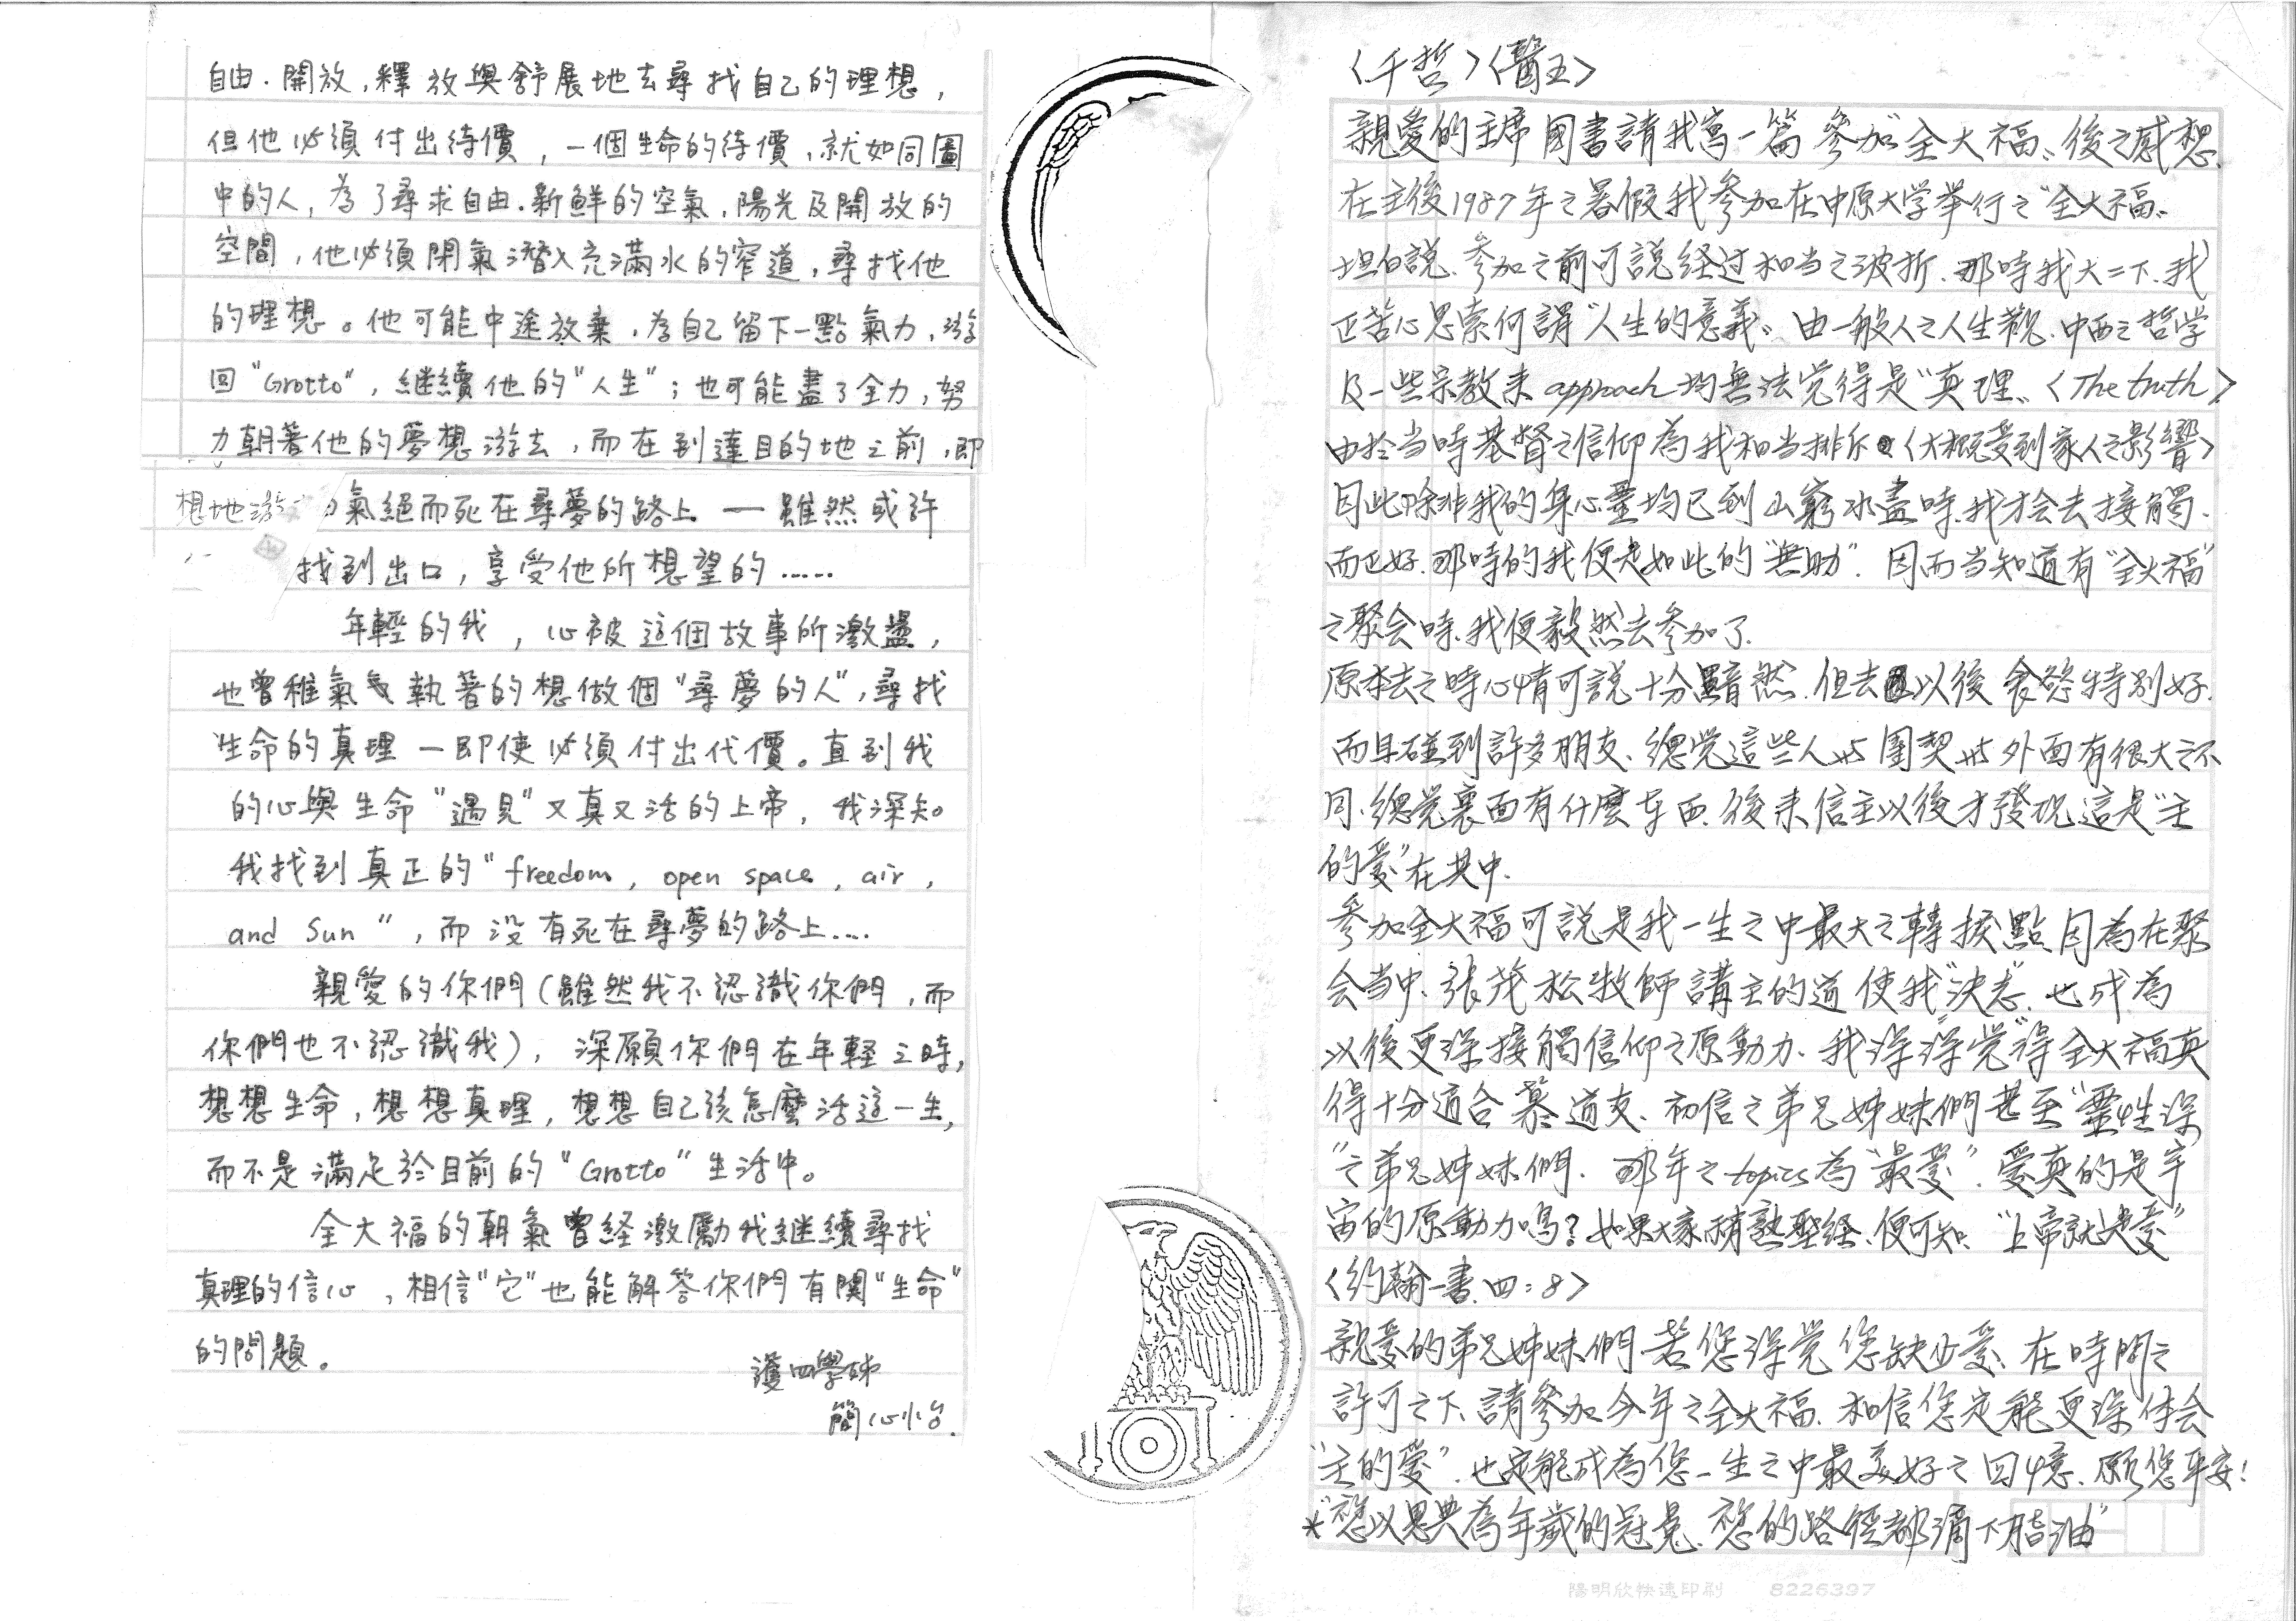 自由．開放，釋放與舒展地去尋找自己的理想，
但他必須付出待價，一個生命的待價，就如同圖
中的人，為了尋求自由．新鮮的空氣，陽光及開放的
空間，他必須閉氣潛入充滿水的窄道，尋找他
的理想。他可能中途放棄，為自己留下一點氣力，游
回"Grotto"，繼續他的"人生"；也可能盡了全力，努
力朝著他的夢想游去，而在到達目的地之前，即
想地游 氣絕而死在尋夢的路上 — 雖然或許
找到出口，享受他所想望的……
年輕的我，心被這個故事所激盪，
也曾稚氣執著的想做個"尋夢的人"，尋找
生命的真理—即使必須付出代價。直到我
的心與生命"遇見"又真又活的上帝，我深知
我找到真正的"freedom, open space, air,
and Sun"，而沒有死在尋夢的路上….
親愛的你們(雖然我不認識你們，而
你們也不認識我)，深願你們在年輕之時，
想想生命，想想真理，想想自己該怎麼活這一生，
而不是滿足於目前的"Grotto"生活中。
全大福的朝氣曾経激勵我継續尋找
真理的信心，相信"它"也能解答你們有関"生命"
的問題。
護四學姊
簡心怡.
〈千哲〉〈醫五〉
親愛的主席國書請我寫一篇參加"全大福"後之感想.
在主後1987年之暑假我參加在中原大学举行之"全大福"
坦白說.參加之前可説经过相当之波折.那時我大二下.我
正苦心思索何謂"人生的意義".由一般人之人生觀.中西之哲学
及一些宗教来approach均無法覚得是"真理"〈The truth〉
由於当時基督之信仰為我相当排斥〈大概受到家人之影響〉
因此除非我的身心靈均已到山窮水盡時.我才会去接觸.
而正好.那時的我便是如此的"無助".因而当知道有"全大福"
之聚会時.我便毅然去參加了.
原本去之時心情可說十分黯然.但去以後食慾特別好.
而且碰到許多朋友.總覚這些人 団契 外面有很大之不
同.總覚裏面有什麼东西.後来信主以後才發現這是"主
的愛"在其中.
參加全大福可説是我一生之中最大之轉捩點.因為在聚
会当中.張茂松牧師講主的道使我"決志".也成為
以後更深接觸信仰之原動力.我深深覚得全大福真
得十分適合慕道友.初信之弟兄姊妹們甚至"靈性深
"之弟兄姊妹們.那年之topics為"最愛".愛真的是宇
宙的原動力嗎?如果大家稍熟聖経.便可知."上帝就是愛"
〈約翰一書.四:8〉
親愛的弟兄姊妹們若您深覚您缺少愛.在時間之
許可之下.請參加今年之全大福.相信您定能更深体会
"主的愛".也定能成為您一生之中最美好之回憶.願您平安!
*"祢以恩典為年歲的冠冕.祢的路徑都滴下脂油"
陽明欣快速印刷 8226397